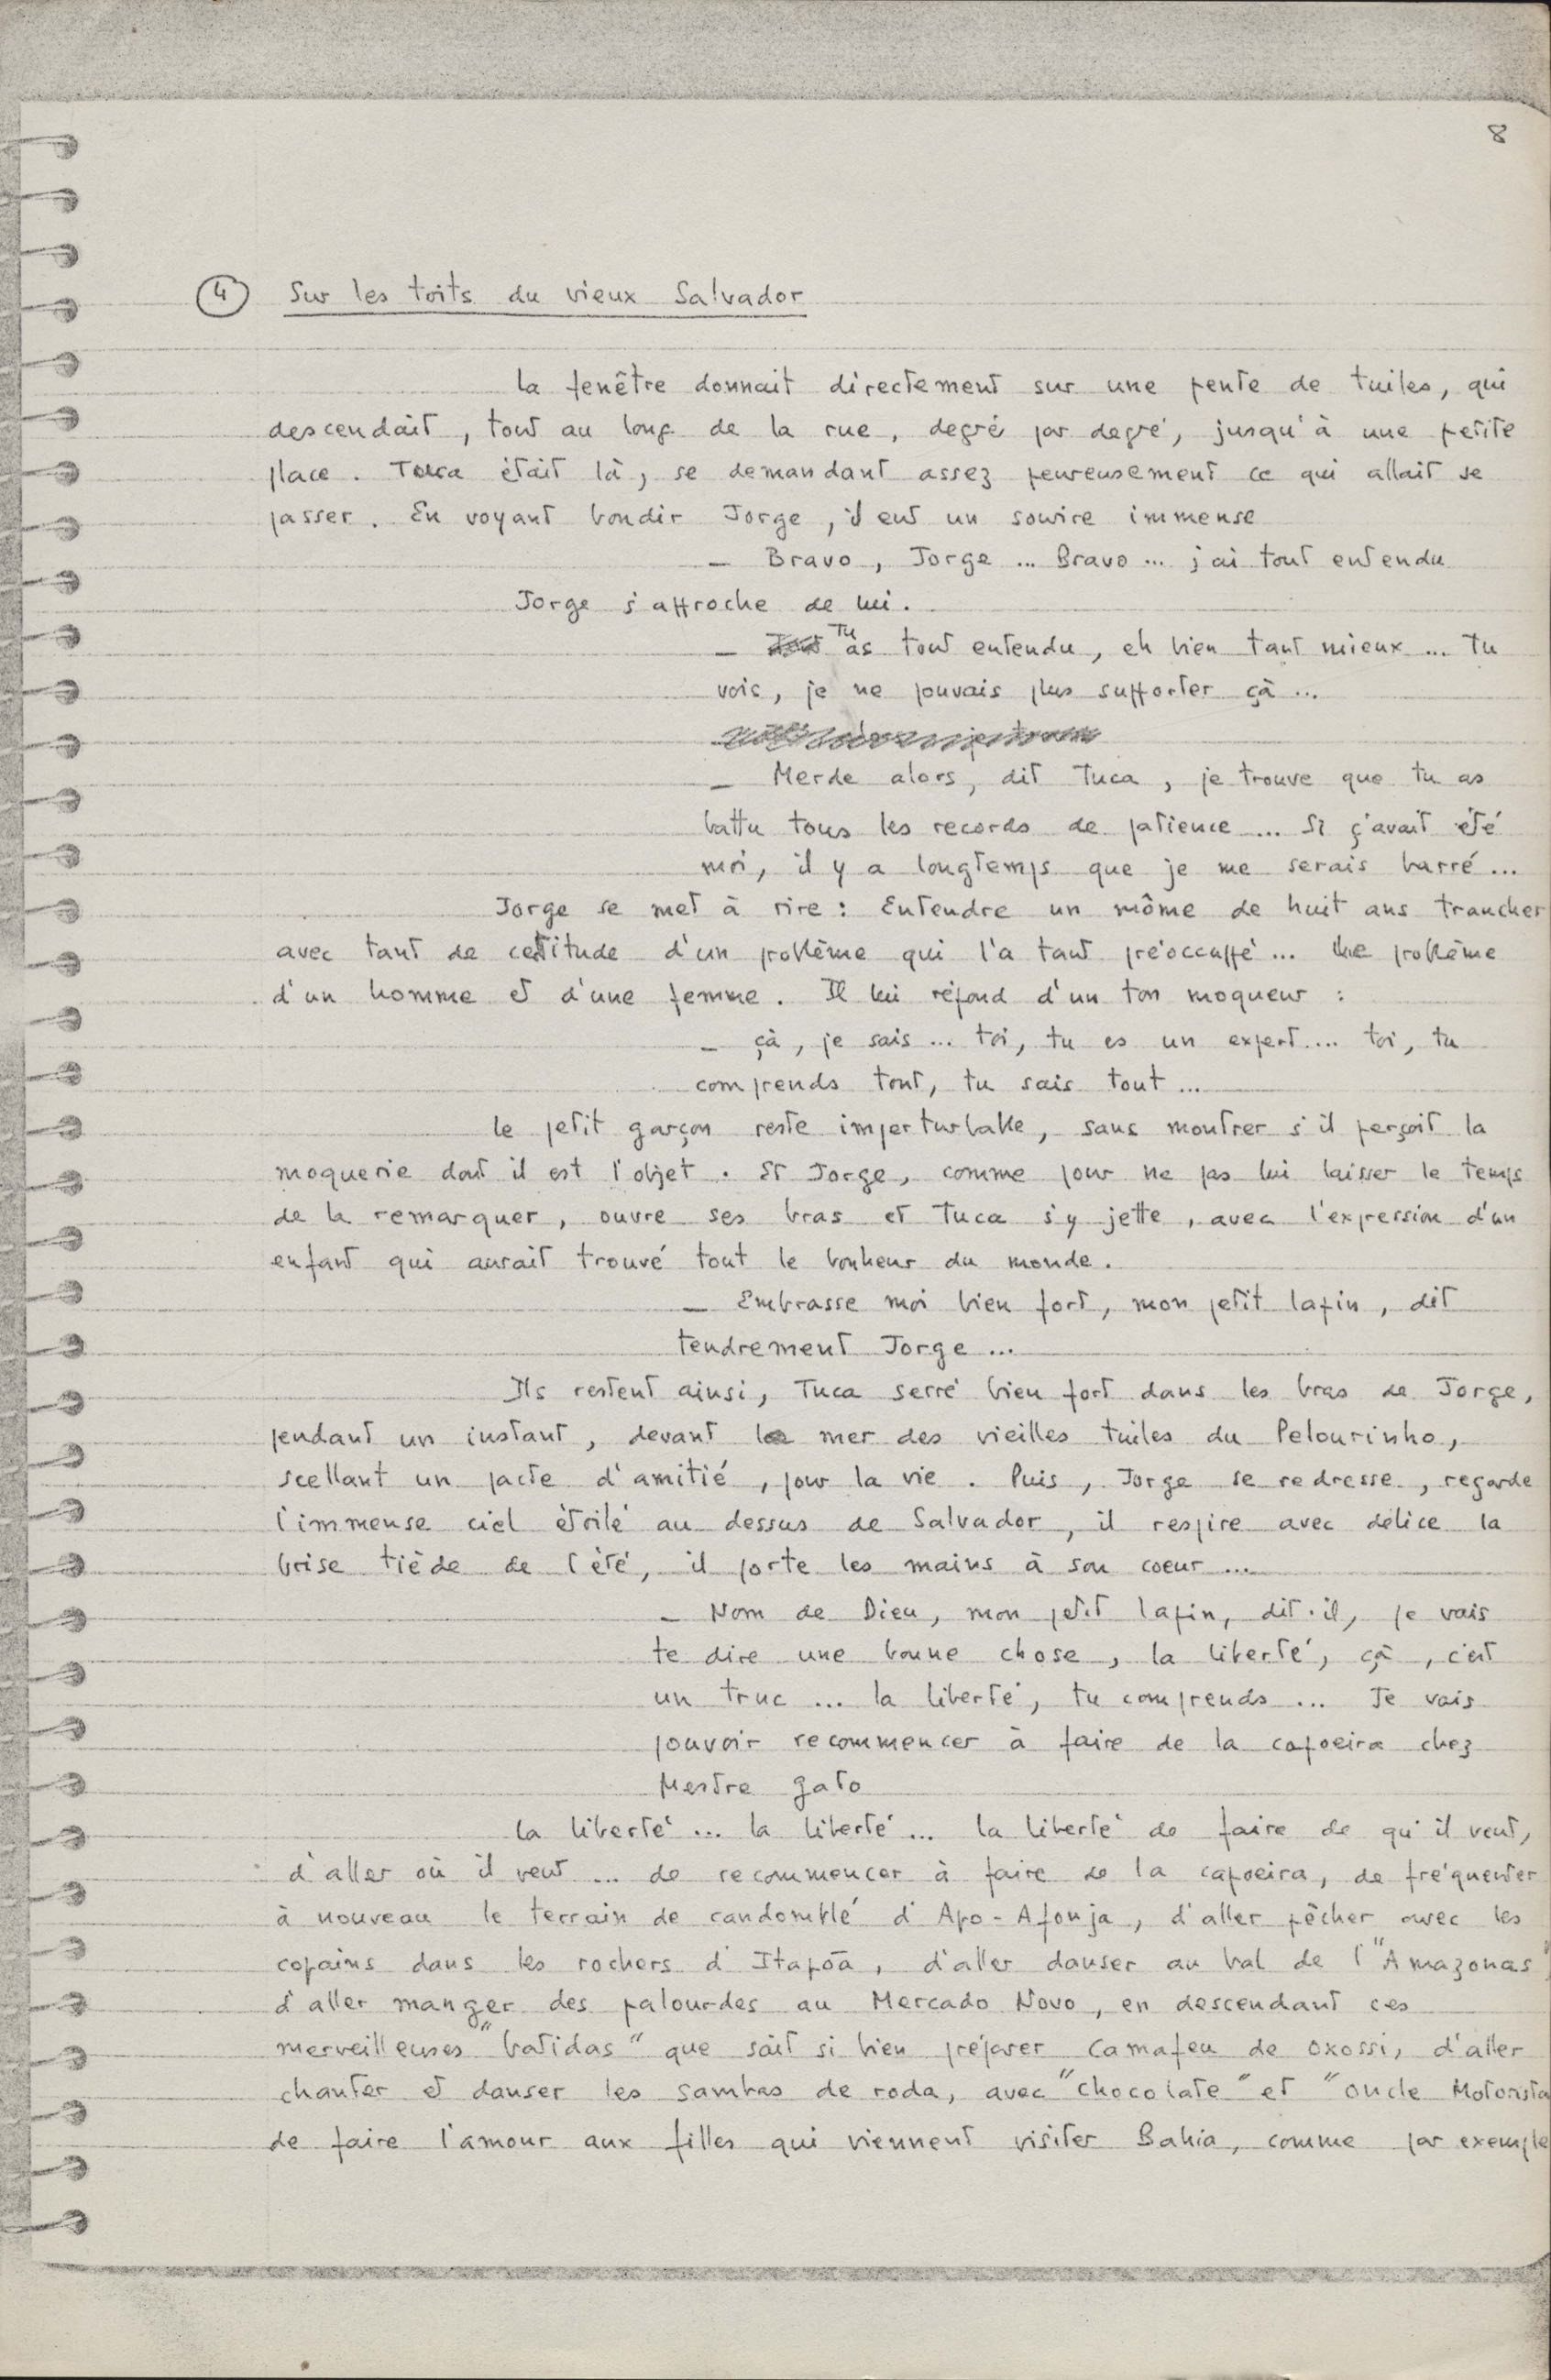 8
4 Sur les toits du vieux Salvador
La fenêtre donnait directement sur une pente de tuiles, qui
descendait, tout au long de la rue, degré par degré, jusqu'à une petite
place. Tuca était là, se demandant assez peureusement ce qui allait se
passer. En voyant bondir Jorge, il eut un sourire immense
_ Bravo, Jorge ... Bravo ... j'ai tout entendu
Jorge s'approche de lui.
_ Tu as tout entendu, eh bien tant mieux ... Tu
vois, je ne pouvais plus supporter çà ...
_ Merde alors, dit Tuca, je trouve que tu as
battu tous les records de patience ... Si ç'avait été
moi, il y a longtemps que je me serais barré ...
Jorge se met à rire : Entendre un môme de huit ans trancher
avec tant de certitude d'un problème qui l'a tant préoccuppé ... Une problème
d'un homme et d'une femme. Il lui répond d'un ton moqueur :
_ çà, je sais ... toi, tu es un expert .... toi, tu
comprends tout, tu sais tout ...
Le petit garçon reste imperturbable, sans montrer s'il perçoit la
moquerie dont il est l'objet. Et Jorge, comme pour ne pas lui laisser le temps
de la remarquer, ouvre ses bras et Tuca s'y jette, avec l'expression d'un
enfant qui aurait trouvé tout le bonheur du monde.
_ Embrasse moi bien fort, mon petit lapin, dit
tendrement Jorge ...
Ils restent ainsi, Tuca serré bien fort dans les bras de Jorge,
pendant un instant, devant la mer des vieilles tuiles du Pelourinho,
scellant un pacte d'amitié, pour la vie. Puis, Jorge se redresse, regarde
l'immense ciel étoilé au dessus de Salvador, il respire avec délice la
brise tiède de l'été, il porte les mains à son coeur ...
_ Nom de Dieu, mon petit lapin, dit-il, je vais
te dire une bonne chose, la liberté, çà, c'est
un truc ... la liberté, tu comprends ... Je vais
pouvoir recommencer à faire de la capoeira chez
Mestre Gato
La liberté ... la liberté ... la liberté de faire de qu'il veut,
d'aller où il veut ... de recommencer à faire de la capoeira, de fréquenter
à nouveau le terrain de candomblé d'Apo-Afonja, d'aller pêcher avec les
copains dans les rochers d'Itapõa, d'aller danser au bal de l'"Amazonas",
d'aller manger des palourdes au Mercado Novo, en descendant ces
merveilleuses "batidas" que sait si bien préparer Camafeu de Oxossi, d'aller
chanter et danser les sambas de roda, avec "Chocolate" et "Oncle Motorista
de faire l'amour aux filles qui viennent visiter Bahia, comme par exemple